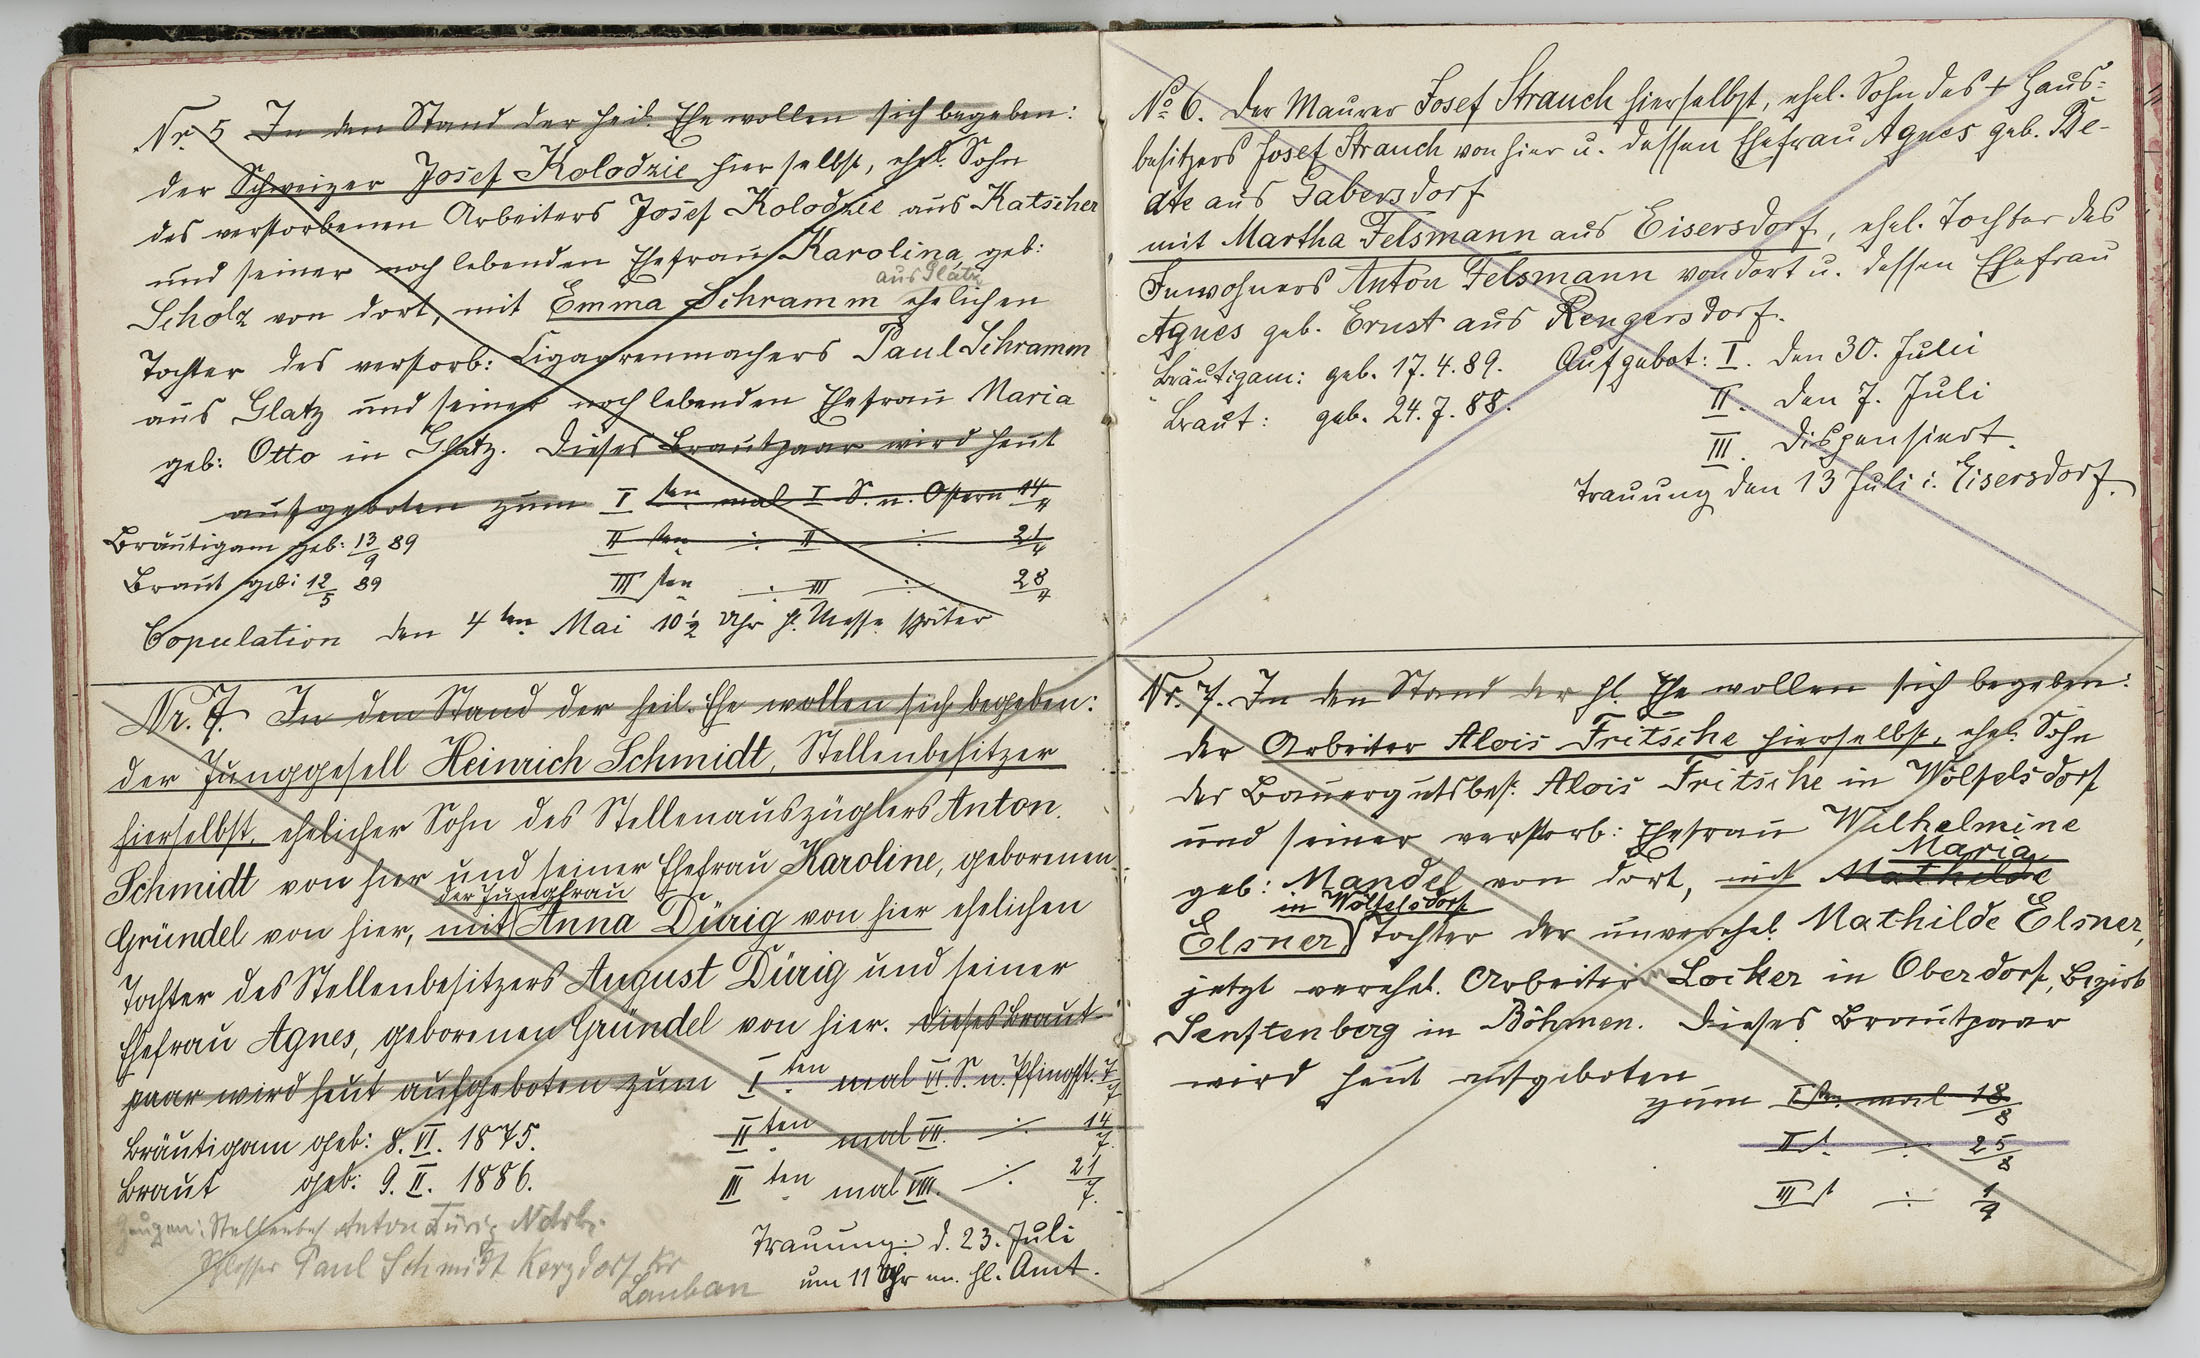 Nr. 5 In den Stand der heil. Ehe wollen sich begeben:
der Schweizer Josef Kolodzie hierselbst, ehel. Sohn
des verstorbenen Arbeiters Josef Kolodzie aus Katscher
und seiner noch lebenden Ehefrau Karolina, geb:
aus Glatz
Scholz von dort, mit Emma Schramm ehelichen
Tochter des verstorb: Cigarrenmachers Paul Schramm
aus Glatz und seiner noch lebenden Ehefrau Maria
geb: Otto in Glatz. Dieses Brautpaar wird heut
aufgeboten zum I ten mal I S. n. Ostern 14/4
Bräutigam geb: 13/9 89 II ten ·/· II ·/· 21/4
Braut geb: 12/5 89 III ten ·/· III ·/· 28/4
Copulation den 4 ten Mai 10 ½ Uhr hl. Messe später
Nr. 7. In den Stand der heil. Ehe wollen sich begeben:
der Junggesell Heinrich Schmidt, Stellenbesitzer
hierselbst, ehelicher Sohn des Stellenauszüglers Anton
Schmidt von hier und seiner Ehefrau Karoline, geborenen
der Jungfrau
Gründel von hier, mit Anna Dürig von hier ehelichen
Tochter des Stellenbesitzers August Dürig und seiner
Ehefrau Agnes, geborenen Gründel von hier. Dieses Braut-
paar wird heut aufgeboten zum I ten mal VI. S. n. Pfingst. 7/7
Bräutigam geb: 8. VI. 1875. II ten mal VII. ·/· 14/7.
Braut geb: 9. II. 1886. III ten mal VIII. ·/· 21/7.
Zeugen: Stellenbes Anton Dürig
Schlosser Paul Schmidt Kerzdorf Kr
Lauban
Trauung: d. 23. Juli
um 11 Uhr m. hl. Amt.
No 6. Der Maurer Josef Strauch hierselbst, ehel. Sohn des + Haus-
besitzers Josef Strauch von hier u. dessen Ehefrau Agnes geb. Be-
dte aus Gabersdorf
mit Martha Felsmann aus Eisersdorf, ehel. Tochter des
Inwohners Anton Felsmann von dort u. dessen Ehefrau
Agnes geb. Ernst aus Rengersdorf.
Bräutigam: geb. 17. 4. 89. Aufgebot: I. den 30. Juni
Braut: geb. 24. 7. 88. II. den 7. Juli
III. dispensiert.
Trauung den 13 Juli i. Eisersdorf.
Nr. 7. In den Stand der hl. Ehe wollen sich begeben:
der Arbeiter Alois Fritsche hierselbst, ehel. Sohn
des Bauergutsbes. Alois Fritsche in Wölfelsdorf
und seiner verstorb: Ehefrau Wilhelmine
Maria
geb: Mandel von dort, mit Mathilde
in Wölfelsdorf
Elsner, Tochter der unverehel. Mathilde Elsner,
jetzt verehel. Arbeiter Locker in Oberdorf, Bezirk
Senftenberg in Böhmen. Dieses Brautpaar
wird heut aufgeboten
zum I ten mal 18/8
II t. ·/· 25/8
III t ·/· 1/9